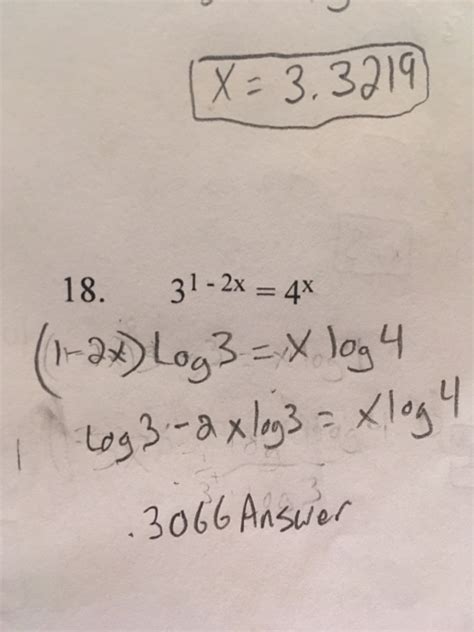 x = 3.3219
18. 3^{1 - 2x} = 4^x
(1-2x) Log3 = x log4
Log3 - 2xlog3 = xlog4
.3066 Answer